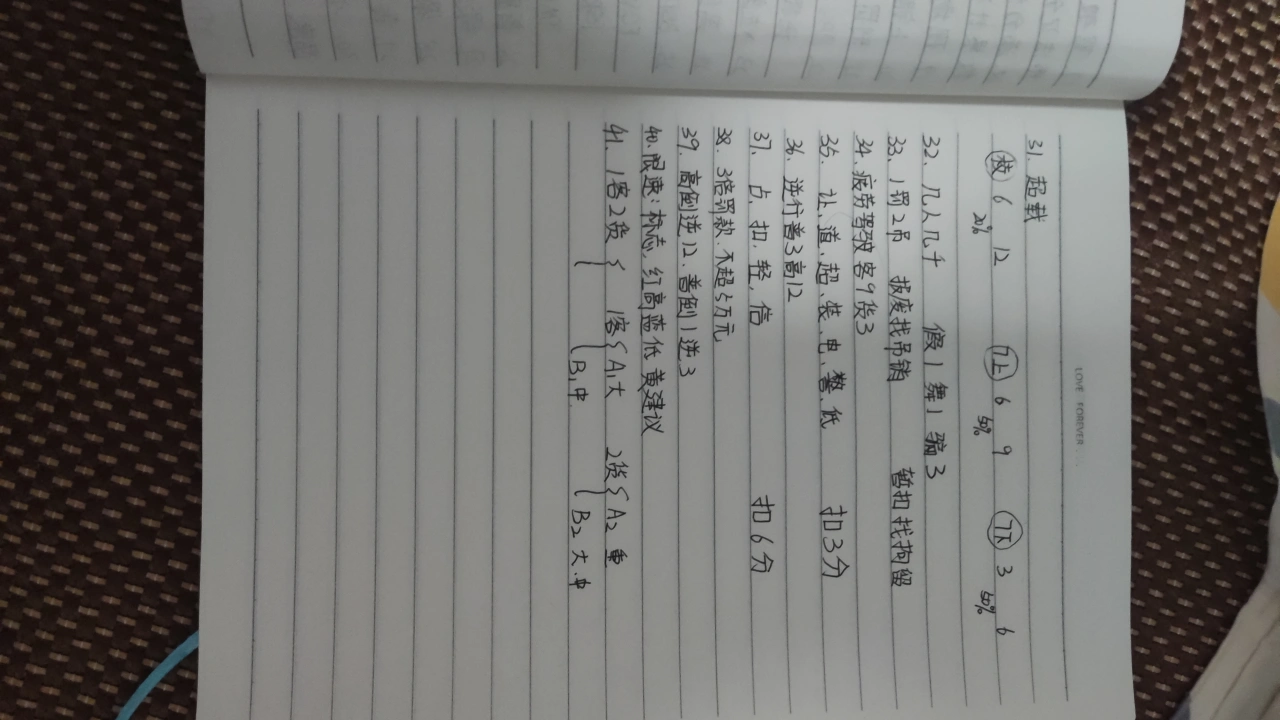 LOVE FOREVER...
31. 超载
校 6 12 7上 6 9 7下 3 6
20% 50% 50%
32. 几人几千 假1 舞1 骗3
33. 1罚2吊 报废找吊销 暂扣找拘留
34. 疲劳驾驶客9货3
35. 让、道、超、装、电、警、低 扣3分
36. 逆行普3高12
37. 占、扣、轻、倍 扣6分
38. 3倍罚款、不超5万元
39. 高倒逆12、普倒1逆3
40. 限速:标志,红高蓝低黄建议
41. 1客2货{ 1客{A1大 2货{A2重
B1中 B2大、中